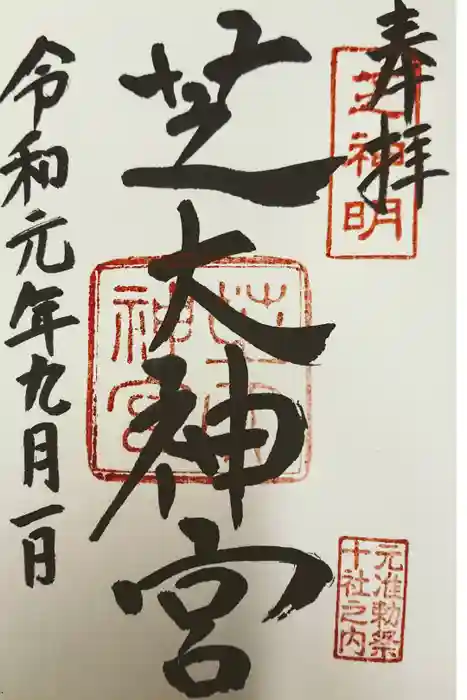 奉拝
芝神明
芝大神宮
芝大神宮
元准勅祭
十社之内
令和元年九月一日